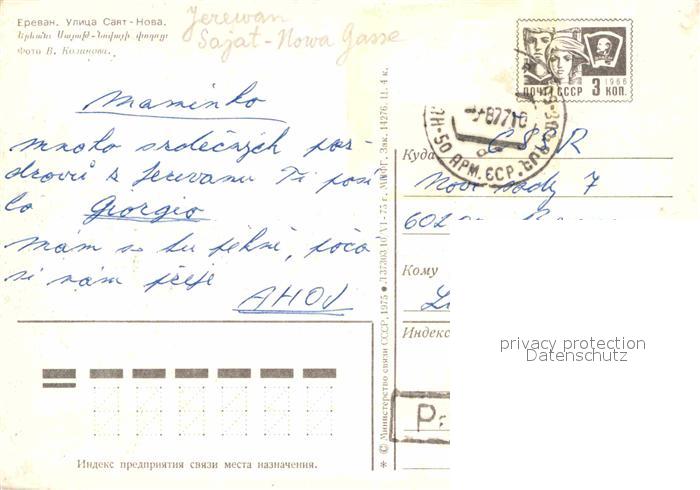 Ереван. Улица Саят-Нова.
Երևան։ Սայաթ-Նովայի փողոց։
Фото В. Коликова.
Jerewan
Sajat-Nowa Gasse
Maminko
mnoho srdečných poz-
dravů z Jerevanu Ti posí
lá Giorgio
mám se tu pěkně, poča
sí nám přeje
AHOJ
Индекс предприятия связи места назначения.
© Министерство связи СССР, 1975 Л 37303 10/VI-75 г. МПФГ. Зак. 14276. Ц. 4 к.
1966
ПОЧТА СССР 3 КОП.
877
АРМ. ССР
Куда ČSSR
Nové sady 7
602
Кому
Индекс
privacy protection
Datenschutz